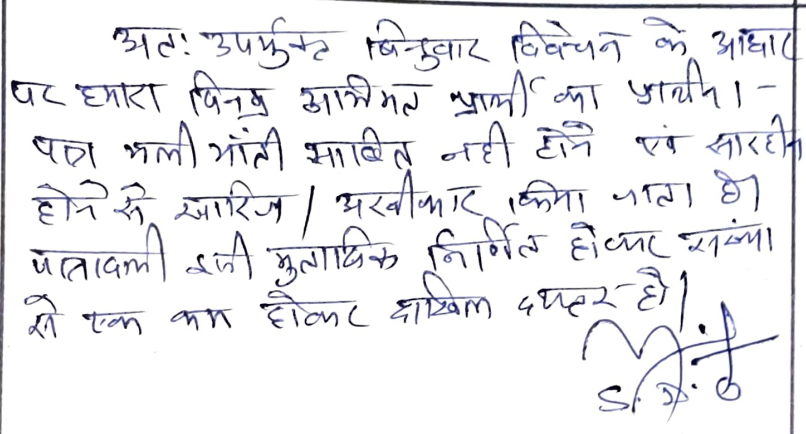 अतः उपर्युक्त बिन्दुवार विवेचन के आधार
पर हमारा विनम्र अभिमत प्रार्थी का प्रार्थना-
पत्र भली भाँती साबित नही होने एवं सारहीन
होने से खारिज / अस्वीकार किया जाता है।
पत्रावली इसी मुताबिक निर्णित होकर संख्या
से एक कम होकर दाखिल दफ्तर हो।